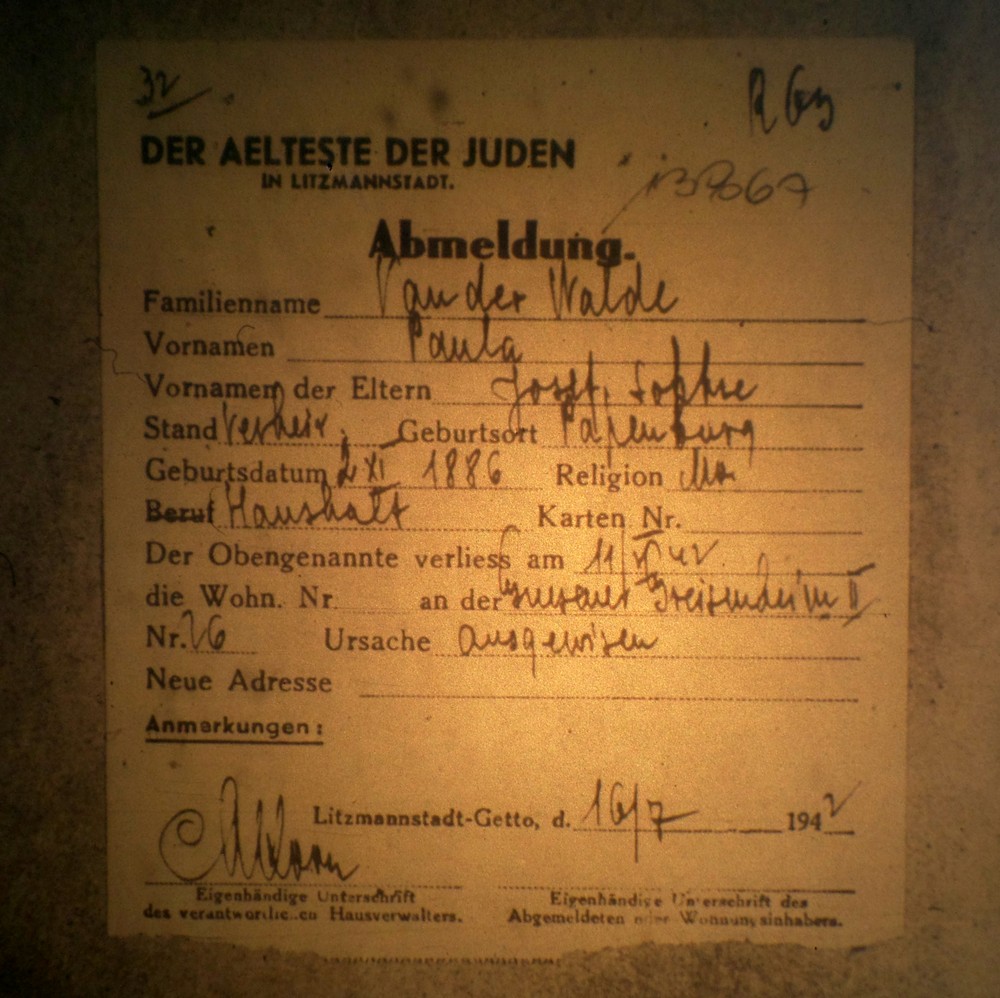 32
R 63
DER AELTESTE DER JUDEN
IN LITZMANNSTADT.
Abmeldung.
Familienname Van der Walde
Vornamen Paula
Vornamen der Eltern Josef, Sophie
Stand Verheir. Geburtsort Papenburg
Geburtsdatum 2 XI 1886 Religion Mos
Beruf Haushalt Karten Nr.
Der Obengenannte verliess am 11/V 42
die Wohn. Nr. an der Gnesener Greisenheim II
Nr. 26 Ursache ausgewisen
Neue Adresse
Anmerkungen:
Litzmannstadt-Getto, d. 16/7 1942
Eigenhändige Unterschrift Eigenhändige Unterschrift des
des verantwortlichen Hausverwalters. Abgemeldeten oder Wohnungsinhabers.